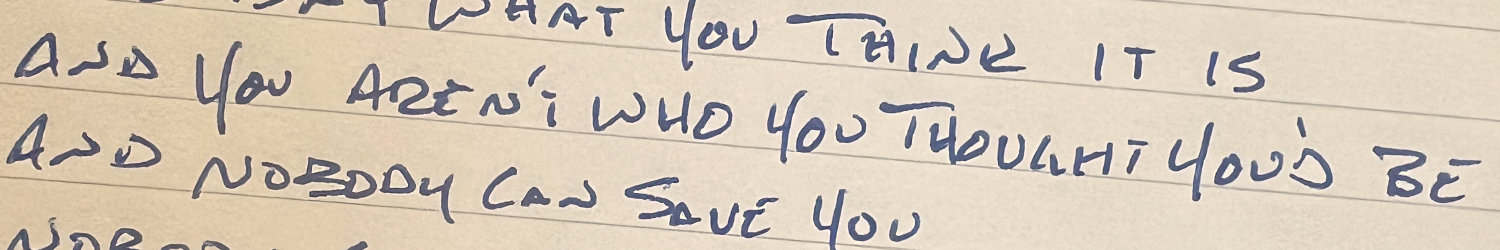 WHAT YOU THINK IT IS
AND YOU AREN'T WHO YOU THOUGHT YOU'D BE
AND NOBODY CAN SAVE YOU